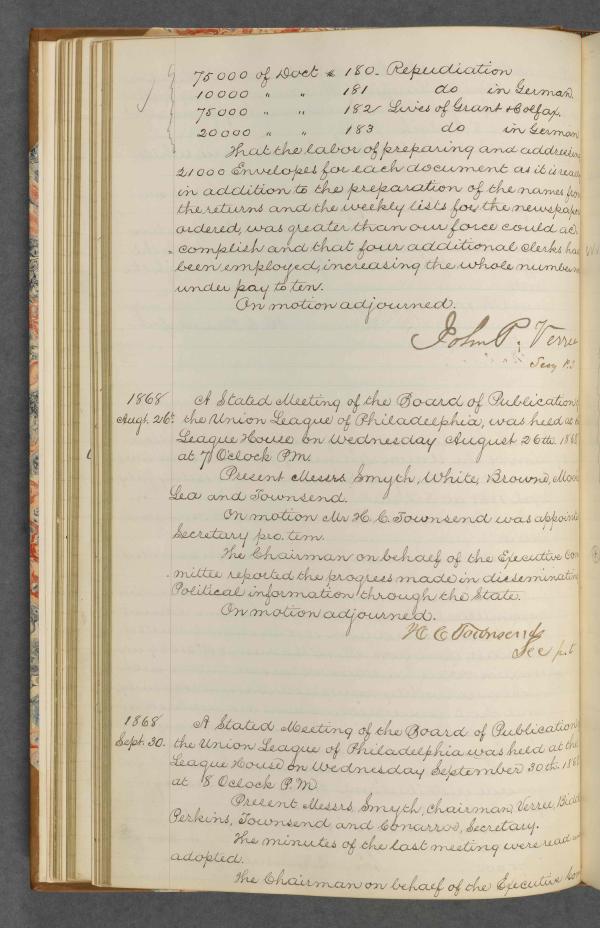 75000 of Doct & 180. Repudiation
10000 " " 181 do in German.
75000 " " 182 Lives of Grant & Colfax.
20000 " " 183 do in German
That the labor of preparing and addressin
21000 Envelopes for each document as it is
in addition to the preparation of the names from
the returns and the weekly lists for the newspape
ordered, was greater than our force could ac
complish and that four additional clerks ha
been employed, increasing the whole number
under pay to ten.
On motion adjourned.
John P. Verree
Secy P.T
1868 A Stated Meeting of the Board of Publication
Augt. 26th the Union League of Philadelphia, was held at
League House on Wednesday August 26th 1868
at 7 Oclock P.M.
Present Messrs Smyth, White, Browne, Moor
Lea and Townsend.
On motion Mr H. C. Townsend was appointe
Secretary pro. tem.
The Chairman on behalf of the Executive Com
mittee reported the progress made in disseminating
Political information through the State.
On motion adjourned.
H C Townsend
Sec p.t
1868 A Stated Meeting of the Board of Publication
Sept. 30. the Union League of Philadelphia was held at the
League House on Wednesday September 30th 1868
at 8 Oclock P.M
Present Messrs Smyth, Chairman, Verree, Bidd
Perkins, Townsend and Conarroe, Secretary.
The minutes of the last meeting were read
adopted.
The Chairman on behalf of the Executive Com